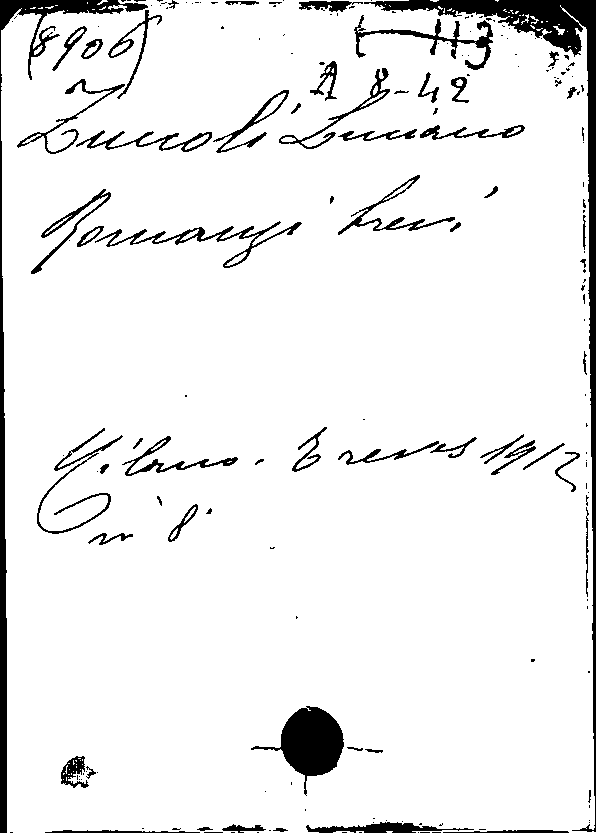 (8906)
I 113
A 8-42
Zuccoli Luciano
Romanzi brevi
Milano. Treves 1912
in 8°